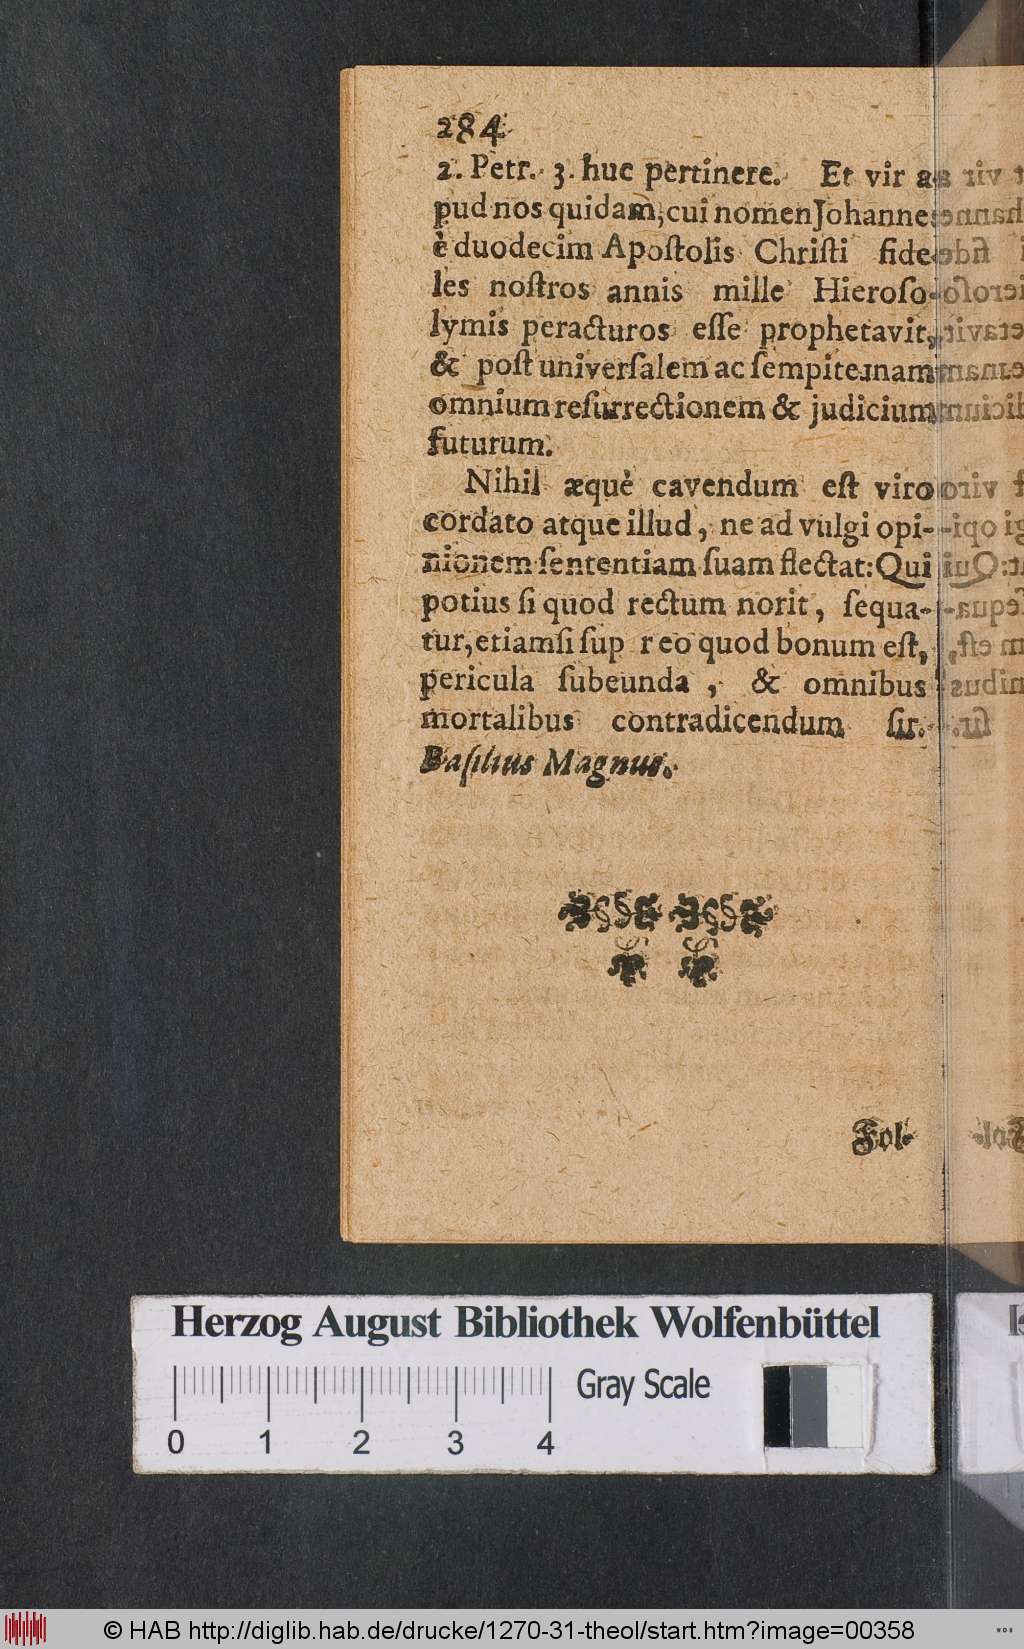 284
2. Petr. 3. huc pertinere. Et vir a-
pud nos quidam, cui nomen Johannes
è duodecim Apoſtolis Chriſti fide-
les noſtros annis mille Hieroſo-
lymis peracturos eſſe prophetavit,
& poſt univerſalem ac ſempiternam
omnium reſurrectionem & judicium
futurum.
Nihil æquè cavendum eſt viro
cordato atque illud, ne ad vulgi opi-
nionem ſententiam ſuam flectat: Qui
potius ſi quod rectum norit, ſequa-
tur, etiamſi ſup r eo quod bonum eſt,
pericula ſubeunda, & omnibus
mortalibus contradicendum ſit.
Baſilius Magnus.
Fol-
Herzog August Bibliothek Wolfenbüttel
Gray Scale
0 1 2 3 4
© HAB http://diglib.hab.de/drucke/1270-31-theol/start.htm?image=00358